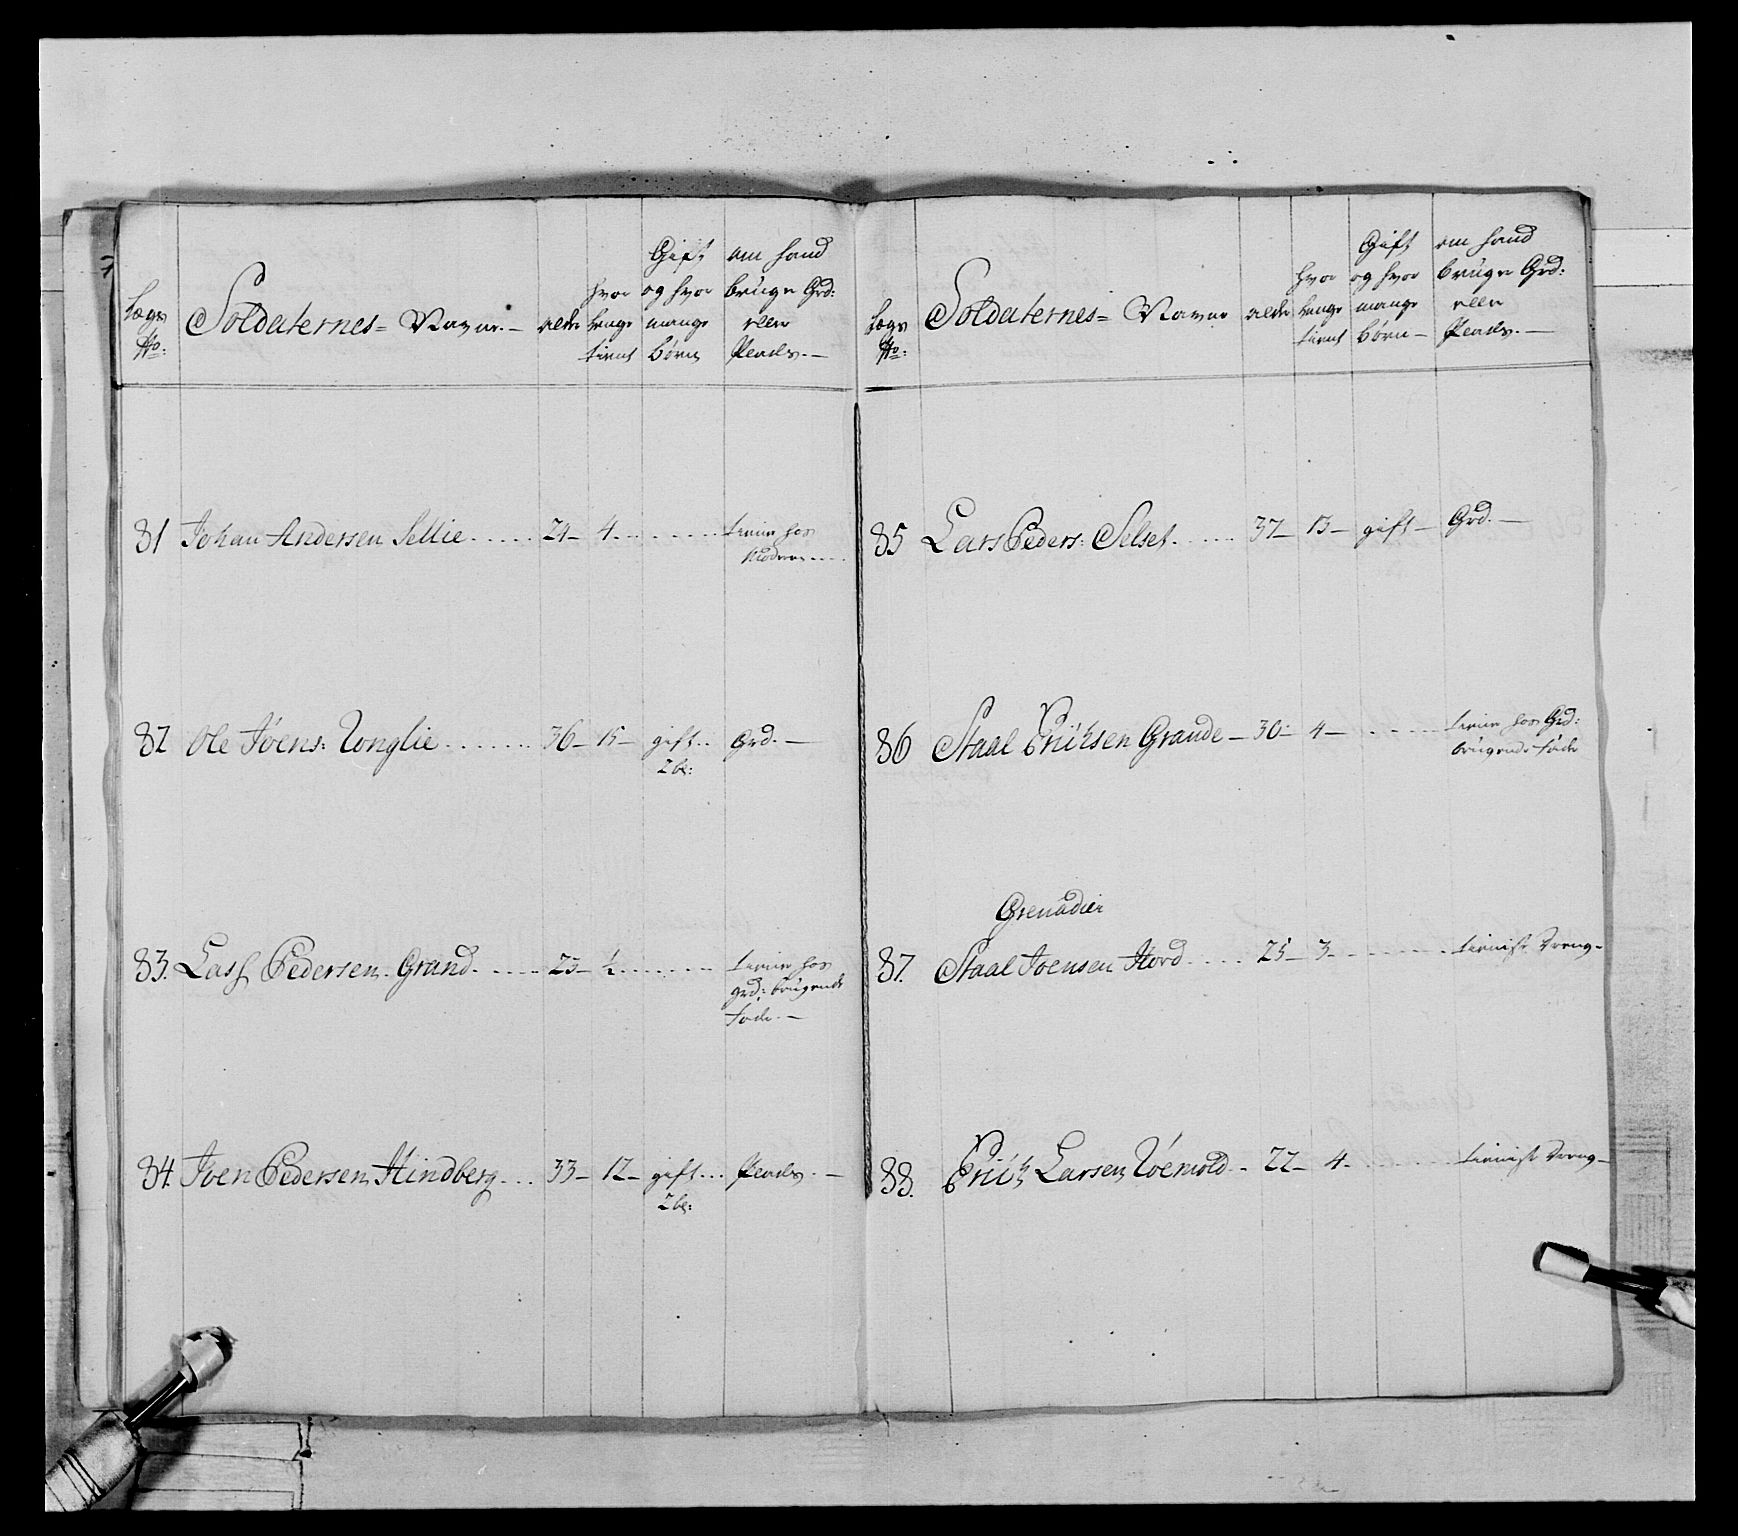 Lægs No: Soldaternes= Navne.— alder hvor længe tient Gift og hvor mange børn om hand bruger Grd: eller Plads.—
81 Johan Andersen Sellie...... 24— 4......... tiener hos
Moderen....
82 Ole Joens: Tonglie....... 36— 15— gift.. Grd.—
2 b:
83. Lass Pedersen Grand...... 25— ½....... tiener hos
grd: brugende
fader.—
84. Joen Pedersen Hindberg... 33— 12— gift... Plads.—
2 b:
Lægs No: Soldaternes= Navne alder længe tient Gift og hvor mange børn— om hand bruger Grd: eller Plads.—
85 Lars Peders: Selset...... 37— 13— gift— Grd.—
86 Staal Erichsen Grande— 30— 4—....... tiener hos Grd:
brugende fader
Grenadier
87. Staal Joensen Hord..... 25— 3—....... tieniste Dreng—
88. Erich Larsen Röemold.. 22— 4........ tieniste Dreng—